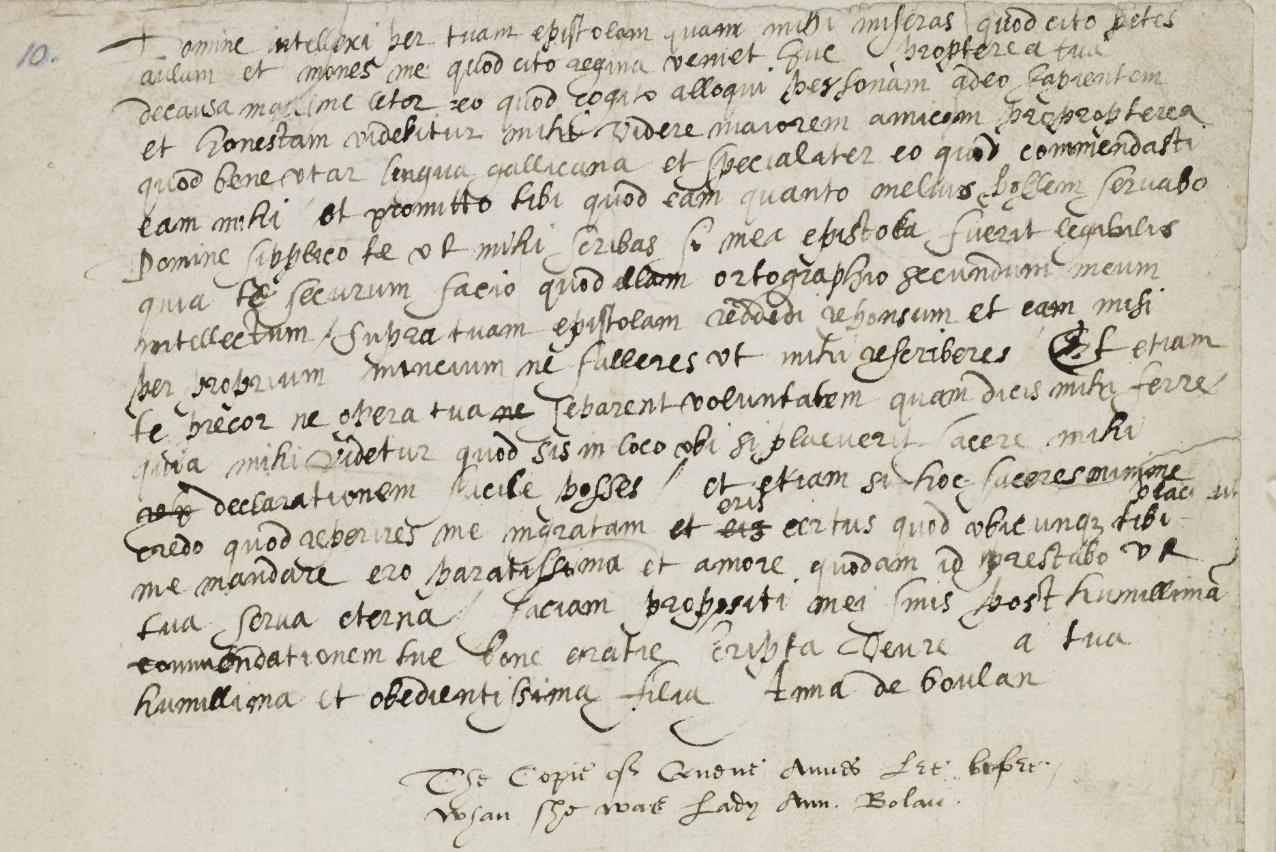 10.
Domine intellexi per tuam epistolam quam mihi miseras quod cito petes
aulam et mones me quod cito regina veniet que propterea tua
decausa maxime letor eo quod cogito alloqui personam adeo sapientem
et honestam videbitur mihi videre maiorem amicam propropterea
quod bene utar lingua gallicana et specialiter eo quod commendasti
eam mihi / et promitto tibi quod eam quanto melius possem servabo
Domine supplico te ut mihi scribas si mea epistola fuerit legibilis
quia te securum facio quod illam ortographio secundum meum
intellectum / supra tuam epistolam reddedi reponsum et eam misi
per proprium nuncium ne falleres ut mihi rescriberes / Et etiam
te precor ne opera tua ne separent voluntatem quam dicis mihi ferre
quia mihi videtur quod sis in loco ubi si placuerit facere mihi
declarationem facile posses / et etiam si hoc faceres minime
credo quod reperires me ingratam et eris certus quod ubicunqz tibi placuit
me mandare ero paratissima et amore quodam id prestabo ut
tua serva eterna / faciam propositi mei finis post humillima
commendationem tue bone gratie scripta Veure a tua
humillima et obedientissima filia Anna de boulan
The Copie of Quene Annes Lre before
whan she was Lady Ann. Bolan.